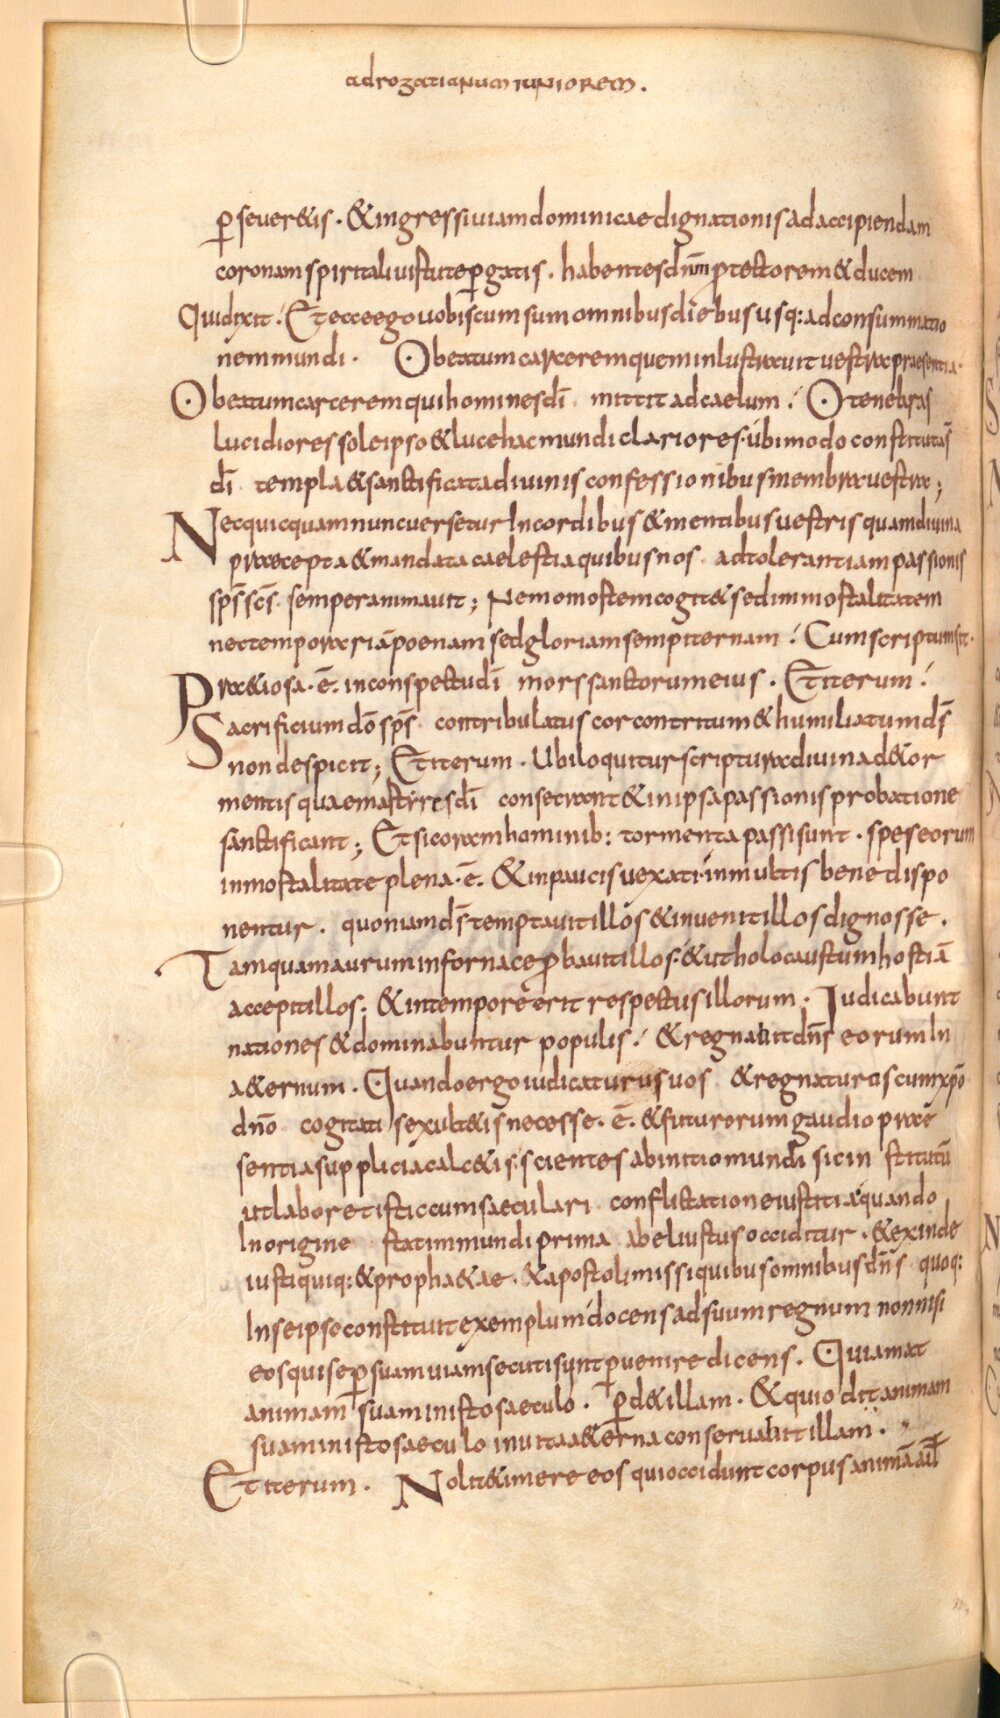 adrogatianum iuniorem.
p̱seuer&is . &ingressi uiam dominicae dignationis ad accipiendam
coronam spiritali uirtute p̱gatis . habentes dn̄m ꝓtectorem & ducem
Qui dixit : Et ecce ego uobiscum sum omnibus diebus usq: ad consummatio
nem mundi . O beatum carcerem quem inlustrauit uestra praesentia .
O beatum carcerem qui homines dī mittit ad caelum . O tenebras
lucidiores sole ipso & luce hac mundi clariores . ubi modo constituta s̄
dī templa & sanctificata diuinis confessionibus membra uestra ;
Nec quicquam nunc uersetur In cordibus & mentibus uestris quam diuina
praecepta & mandata caelestia quibus nos ad tolerantiam passionis
sps̄ scs̄ semper animauit ; Nemo mortem cogit& sed immortalitatem
nec temporariā poenam sed gloriam sempiternam : Cum scriptum sit .
Pra&iosa . ē . in conspectu dī mors sanctorum eius . Et iterum :
Sacrificium dō sps̄ contribulatus cor contritum & humiliatum ds̄
non despicit ; Et iterum . Ubi loquitur scriptura diuina de tor
mentis quae martyres dī consecrant & in ipsa passionis probatione
sanctificant ; Et si coram hominib: tormenta passi sunt . spes eorum
inmortalitate plena . ē . & in paucis uexati in multis bene dispo
nentur . quoniam ds̄ temptauit illos & inuenit illos dignos se .
Tamquam aurum in fornace ꝓbauit illos : & ut holocaustum hostiā
accepit illos : & in tempore erit respectus illorum . Iudicabunt
nationes & dominabuntur populis : & regnabit dn̄s eorum In
a&ernum . Quando ergo iudicaturus uos & regnaturus cum xp̄o
dn̄o cogitatis exult&is necesse . ē . & futurorum gaudio prae
sentia supplicia calc&is : scientes ab initio mundi sic institutū
ut labor& istic cum saeculari conflictatione iustitia quando
In origine statim mundi prima abel iustus occiditur . & exinde
iusti quiq: & proph&ae . & apostoli missi quibus omnibus dn̄s quoq:
In se ipse constituit exemplum docens ad suum regnum non nisi
eos qui se p̱ suam uiam secuti sunt p̱uenire dicens . Qui amat
animam suam in isto saeculo . p̱d& illam . & qui odit animam
suam in isto saeculo in uita a&erna conseruabit illam .
Et iterum . Nolite timere eos qui occidunt corpus animā aut̄